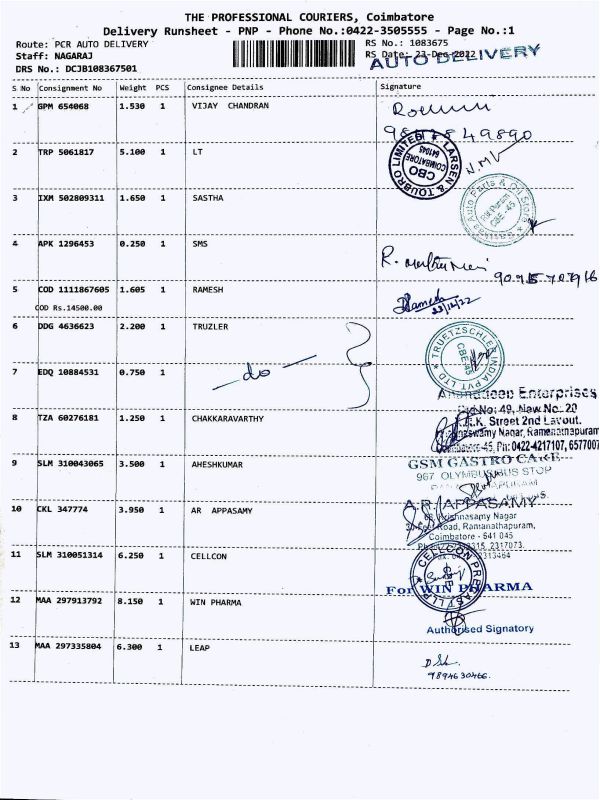 THE PROFESSIONAL COURIERS, Coimbatore
Delivery Runsheet - PNP - Phone No.:0422-3505555 - Page No.:1
Route: PCR AUTO DELIVERY
RS No.: 1083675
Staff: NAGARAJ
RS Date: 23-Dec-2022
AUTO DELIVERY
DRS No.: DCJB108367501
S No Consignment No Weight PCS Consignee Details Signature
1 GPM 654068 1.530 1 VIJAY CHANDRAN
49890
2 TRP 5061817 5.100 1 LT
LARSEN & TOUBRO LIMITED
CBO
COIMBATORE
641045
3 IXM 502809311 1.650 1 SASTHA
Auto Parts & Oil Store
CBE-45
4 APK 1296453 0.250 1 SMS
R.
5 COD 1111867605 1.605 1 RAMESH
COD Rs.14500.00
Ramesh
23/12/22
6 DDG 4636623 2.200 1 TRUZLER
TRUETZSCHLER INDIA PVT LTD
CBE-45
7 EDQ 10884531 0.750 1
-do-
Enterprises
No: 49, New No: 20
Street 2nd Layout.
8 TZA 60276181 1.250 1 CHAKKARAVARTHY
Nagar, Ramanathapuram
-45, Ph: 0422-4217107, 6577007
9 SLM 310043065 3.500 1 AHESHKUMAR
GSM GASTRO CARE
967 OLYMBUS BUS STOP
10 CKL 347774 3.950 1 AR APPASAMY
A.R. APPASAMY
Krishnasamy Nagar
Road, Ramanathapuram,
Coimbatore - 641 045
2317073
2313464
11 SLM 310051314 6.250 1 CELLCON
CELLCON
12 MAA 297913792 8.150 1 WIN PHARMA
For WIN PHARMA
Authorised Signatory
13 MAA 297335804 6.300 1 LEAP
9894630466.